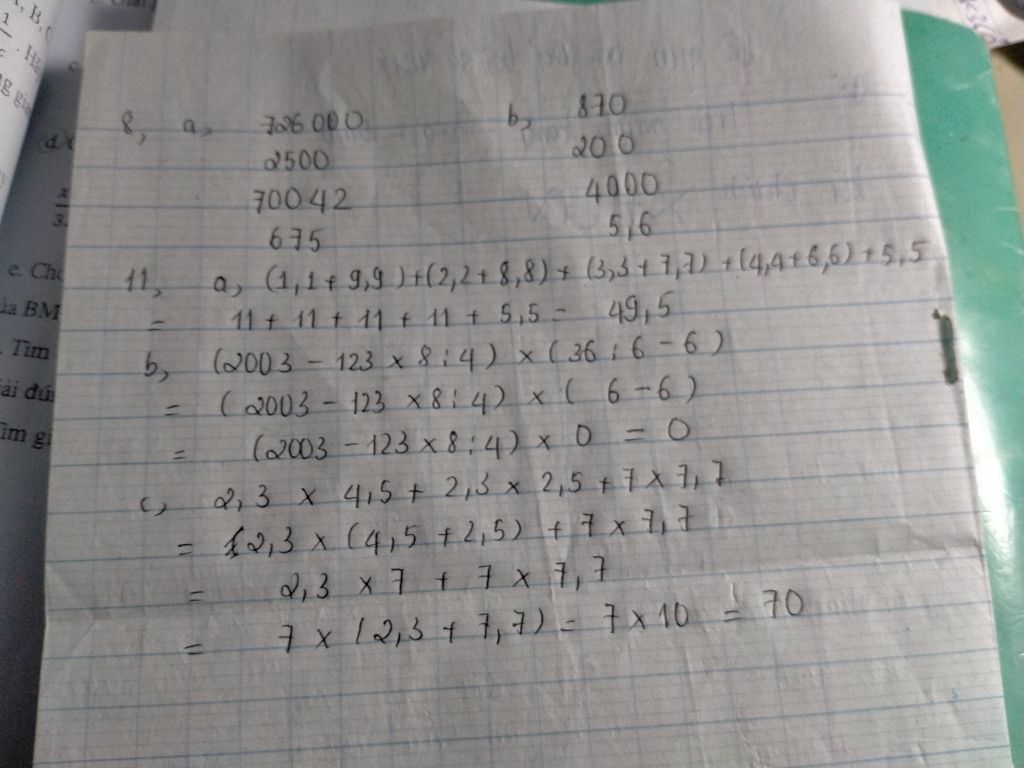 8, a, 726000 b, 870
2500 200
70042 4000
675 5,6
11, a, (1,1 + 9,9) + (2,2 + 8,8) + (3,3 + 7,7) + (4,4 + 6,6) + 5,5
= 11 + 11 + 11 + 11 + 5,5 = 49,5
b, (2003 - 123 x 8 : 4) x (36 : 6 - 6)
= (2003 - 123 x 8 : 4) x (6 - 6)
= (2003 - 123 x 8 : 4) x 0 = 0
c, 2,3 x 4,5 + 2,3 x 2,5 + 7 x 7,7
= 2,3 x (4,5 + 2,5) + 7 x 7,7
= 2,3 x 7 + 7 x 7,7
= 7 x (2,3 + 7,7) = 7 x 10 = 70
, B, C
1
d.
x
3.
e. Ch
BM
Tìm